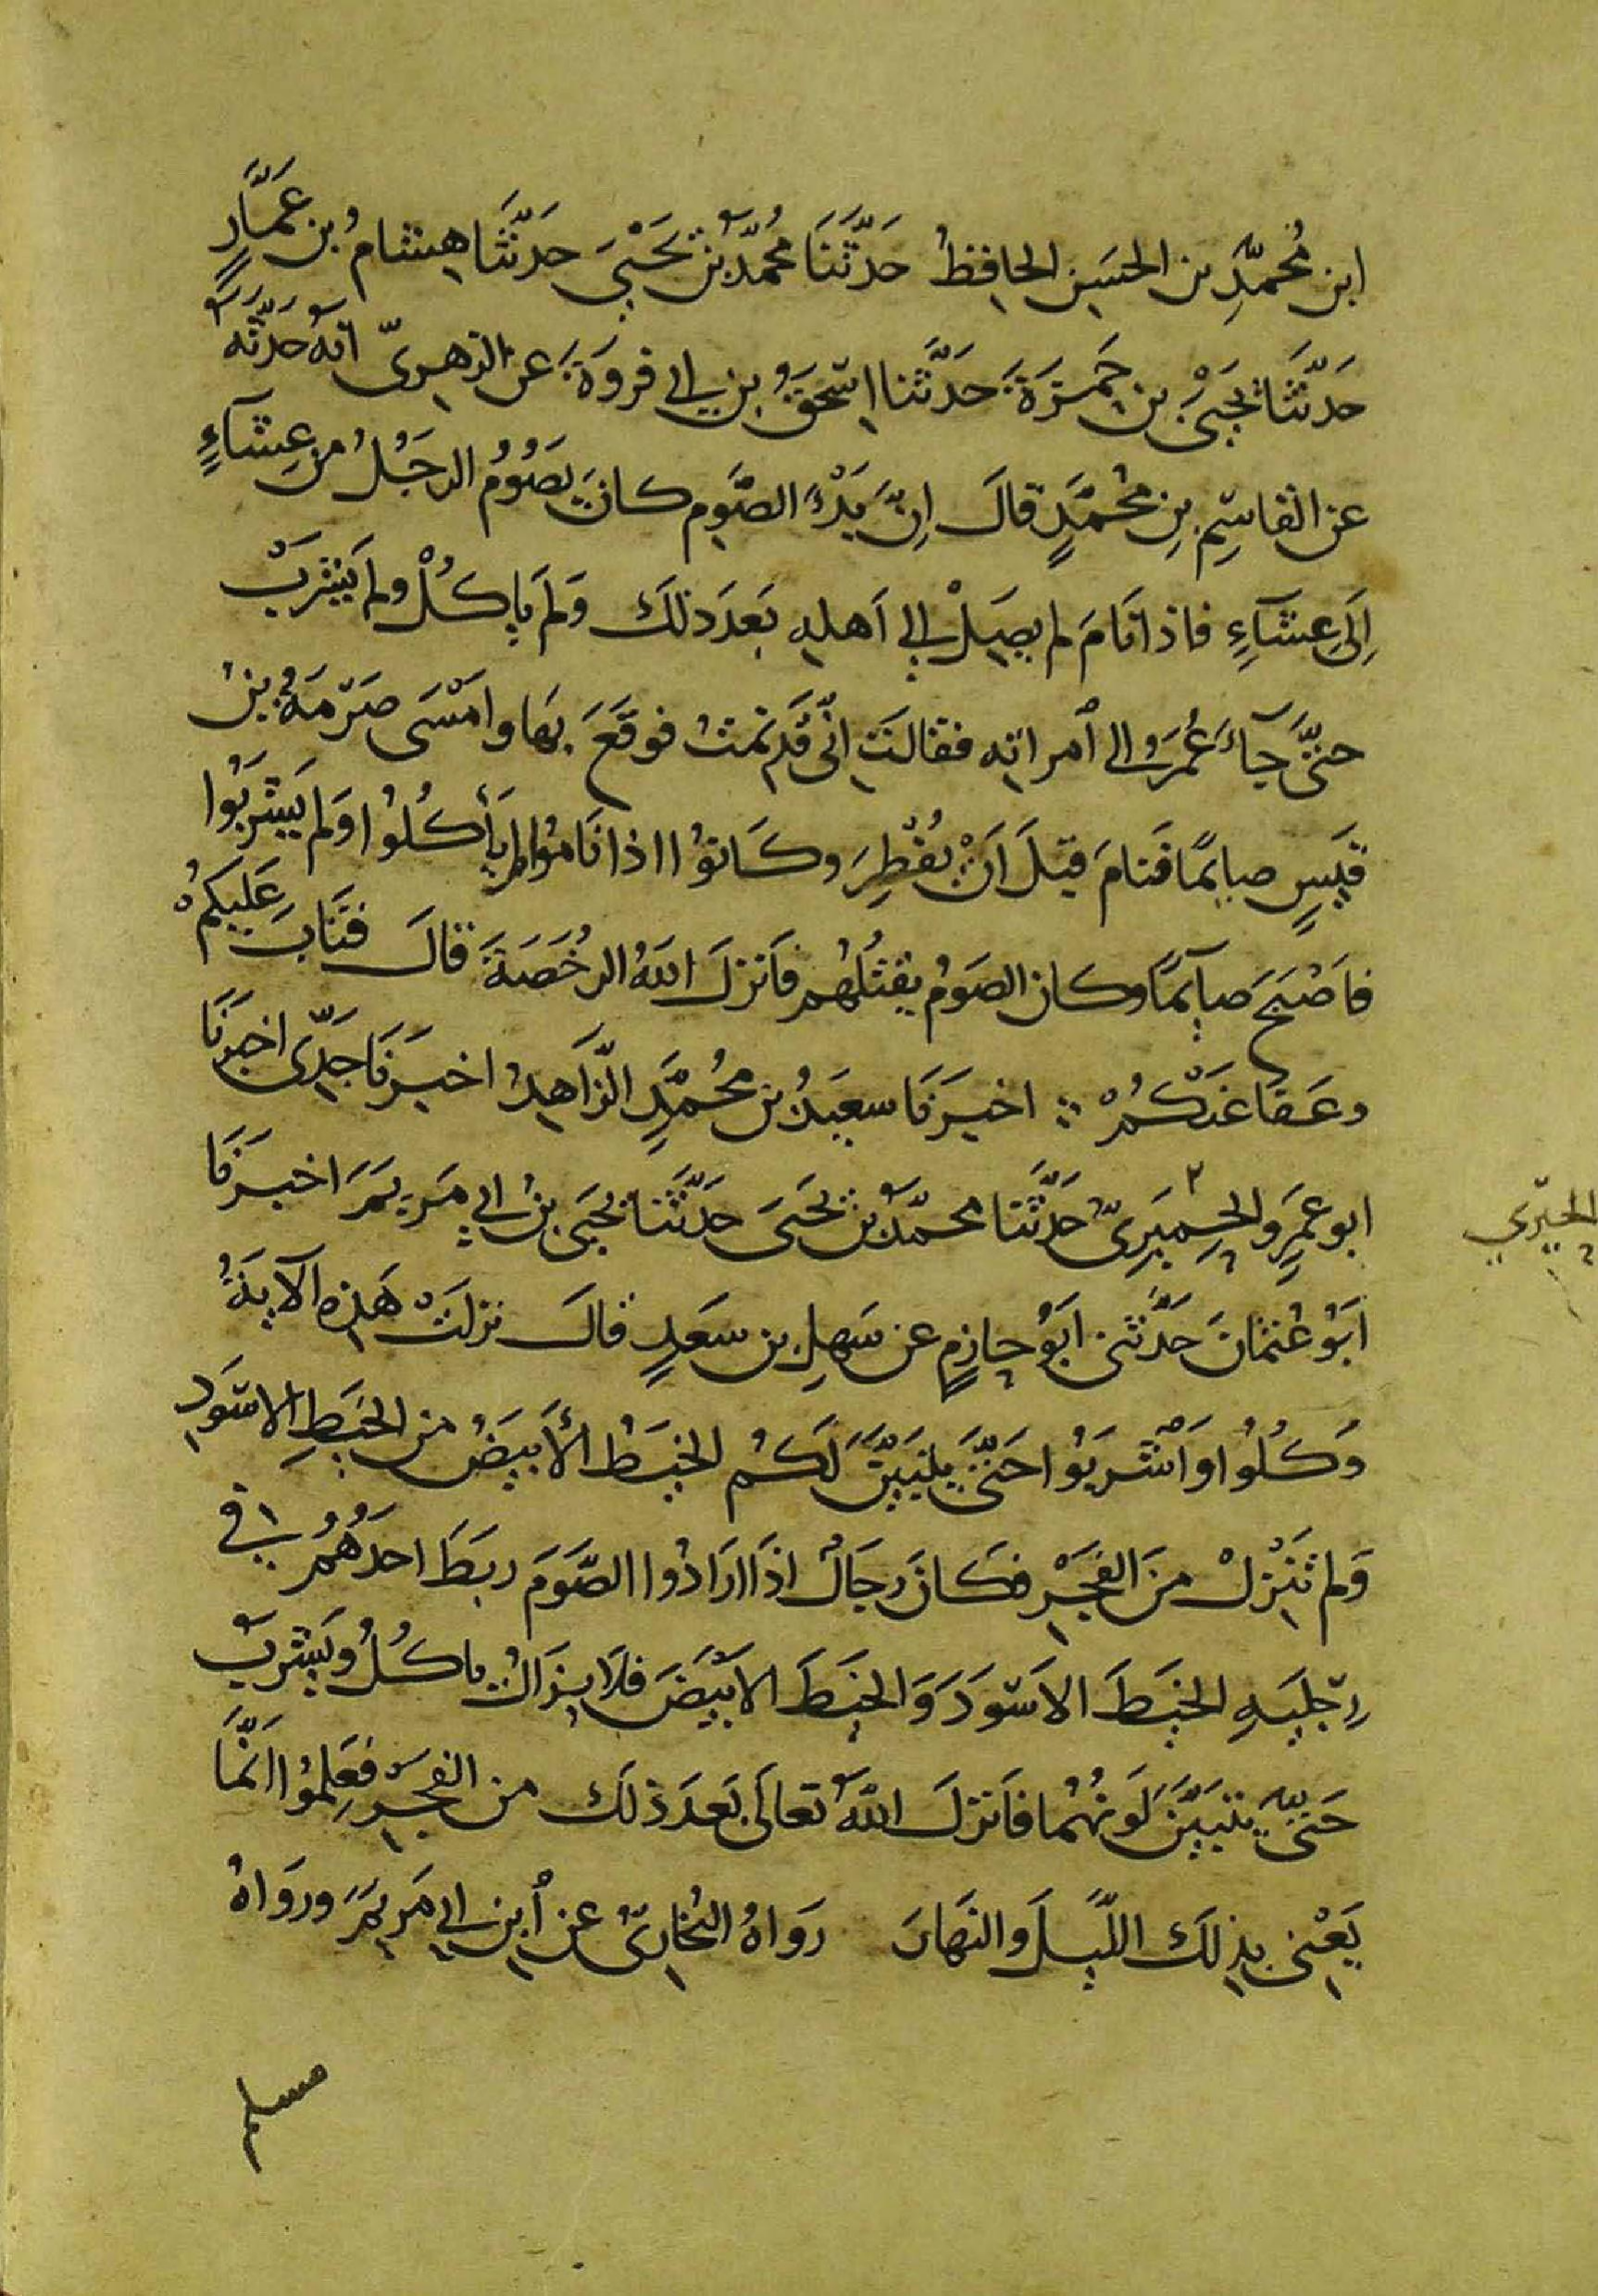 ابن مُحمّدِ بن الحسَين الحافظُ حَدَّثَنَا مُحمّدُ بنُ يَحْيَى حدثنَا هشامُ بن عَمَّارٍ
حَدَّثنَا يحيَىْ بن حَمزَةَ حدَّثنا اسحٰقُ بن ابى فروَةَ عن الزهرىّ انهُ حَدثَه
عن القاسِمِ بنِ مُحمّدٍ قالَ اِنَّ بَدْءَ الصَّومِ كانَ يَصُوُمُ الرجَلُ من عِشآءٍ
اِلَى عِشَآءِ فاذا نَامَ لم يصِلْ الى اَهلهِ بَعدَ ذلكَ وَلَم ياكُلْ ولم يَشرَبْ
حتَّى جآءَ عُمَرُ الى اُمراته فقالَت اِنّى قَد نمتُ فوقَعَ بها وامْسَى صَرْمَةُ بنُ
قَيسٍ صايمًا فَنامَ قبلَ اَنْ يُفْطِرَ وكَانوُا اذا نَاموُا لم يَأكُلوُا وَلم يَشرَبُوا
فاَصْبَحَ صآيمًا وكان الصَومُ يقتُلهُم فاَنزلَ اللهُ الرُخَصَةَ قالَ فتَابَ عَليكُم
وعَفَا عَنْكُمْ ∴ اخبَرنَا سعيَدُ بن مُحمّدٍ الزَّاهِدُ اخبَرنَا جَدِّى اخبَرنَا
ابو عَمرٍو الحِميَرِىّ ٢ حَدَّثَنا محمّدُ بن يَحيَى حَدَّثَنا يَحيَى بن ابى مَريَمَ اخبَرنَا
الحِيّرِي
اَبُو عُثمَانَ حَدَّثنى ابَوُ حازِمٍ عن سَهلِ بن سَعدٍ قالَ نزلَتْ هَذِه الآيةُ
وَكُلوُا وَاَشْرَبوُا حَتَّى يتبَيَّنَ لَكمُ الخيَطُ الأَبيَضُ من الخيَطِ الاسَودِ
وَلم تَنْزلْ منَ الفَجْرِ فكَانَ رجَالٌ اذَا ارَادُوا الصَّوَمَ ربَطَ احدُهُمُ فى
رِجليَهِ الخيَطَ الاَسَودَ وَالخيَطَ الابَيَضَ فلَا يزَالُ ياكُلُ ويَشرَبُ
حَتَّى يتبَيَّنَ لَونهُمُا فاَنزلَ اللهُ تعالَى بَعدَ ذٰلكَ من الفَجْرِ فعَلِمُوا اَنَّمَا
يَعْنى بذلكَ اللَّيلَ والنَهارَ رَوَاهُ البُخارِىُّ عن اُبن ابى مَريَمَ ورَوَاهُ
مسلم